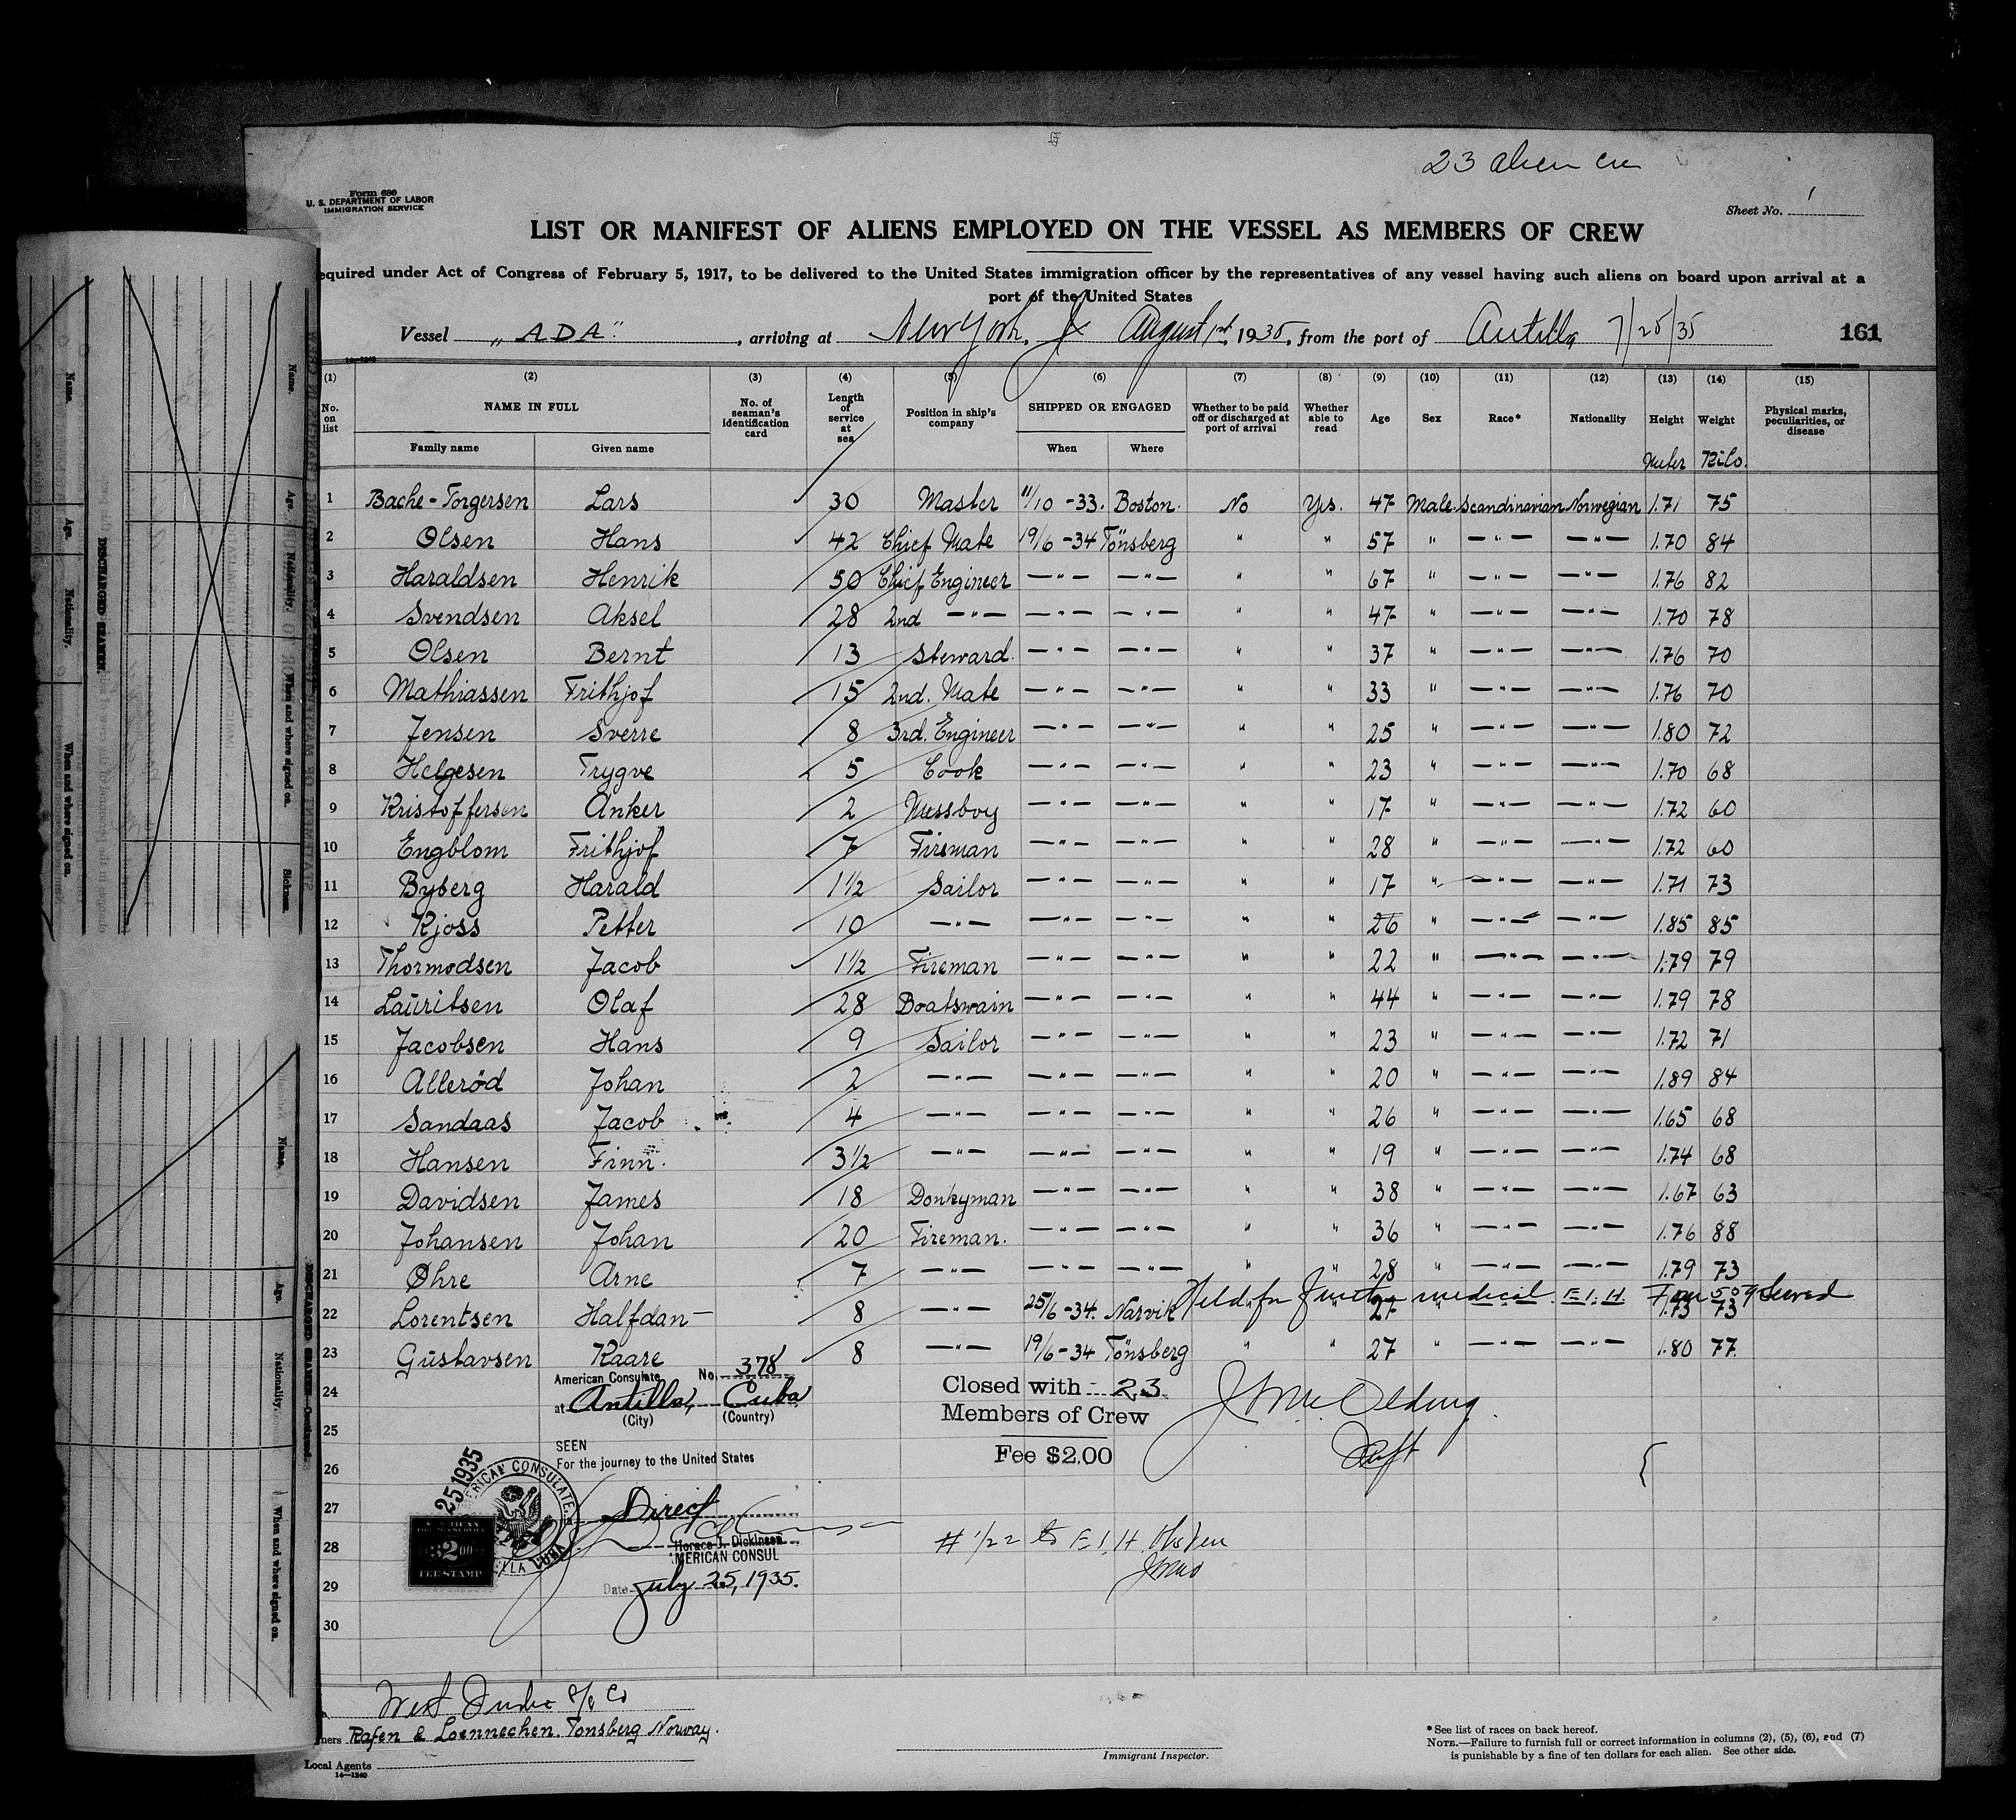 23 alien
Form 680
U. S. DEPARTMENT OF LABOR
IMMIGRATION SERVICE
Sheet No. 1
LIST OR MANIFEST OF ALIENS EMPLOYED ON THE VESSEL AS MEMBERS OF CREW
equired under Act of Congress of February 5, 1917, to be delivered to the United States immigration officer by the representatives of any vessel having such aliens on board upon arrival at a
port of the United States
Vessel "ADA", arriving at New York, August 1st, 1935, from the port of Antilla 7/25/35 161
14-1240
(1) (2) (3) (4) (5) (6) (7) (8) (9) (10) (11) (12) (13) (14) (15)
No. on list NAME IN FULL Family name Given name No. of seaman's identification card Length of service at sea Position in ship's company SHIPPED OR ENGAGED When Where Whether to be paid off or discharged at port of arrival Whether able to read Age Sex Race* Nationality Height Weight Physical marks, peculiarities, or disease
Meter Kilo.
1 Bache-Torgersen Lars 30 Master 11/10 -33. Boston. No Yes. 47 Male Scandinavian Norwegian 1.71 75
2 Olsen Hans 42 Chief Mate 19/6 -34 Tönsberg " " 57 " —"— —"— 1.70 84
3 Haraldsen Henrik 50 Chief Engineer —"— —"— " " 67 " —"— —"— 1.76 82
4 Svendsen Aksel 28 2nd —"— —"— —"— " " 47 " —"— —"— 1.70 78
5 Olsen Bernt 13 Steward. —"— —"— " " 37 " —"— —"— 1.76 70
6 Mathiassen Frithjof 15 2nd. Mate —"— —"— " " 33 " —"— —"— 1.76 70
7 Jensen Sverre 8 3rd. Engineer —"— —"— " " 25 " —"— —"— 1.80 72
8 Helgesen Trygve 5 Cook —"— —"— " " 23 " —"— —"— 1.70 68
9 Kristoffersen Anker 2 Messboy —"— —"— " " 17 " —"— —"— 1.72 60
10 Engblom Frithjof 7 Fireman —"— —"— " " 28 " —"— —"— 1.72 60
11 Byberg Harald 1½ Sailor —"— —"— " " 17 " —"— —"— 1.71 73
12 Kjoss Petter 10 —"— —"— —"— " " 26 " —"— —"— 1.85 85
13 Thormodsen Jacob 1½ Fireman —"— —"— " " 22 " —"— —"— 1.79 79
14 Lauritsen Olaf 28 Boatswain —"— —"— " " 44 " —"— —"— 1.79 78
15 Jacobsen Hans 9 Sailor —"— —"— " " 23 " —"— —"— 1.72 71
16 Alleröd Johan 2 —"— —"— —"— " " 20 " —"— —"— 1.89 84
17 Sandaas Jacob 4 —"— —"— —"— " " 26 " —"— —"— 1.65 68
18 Hansen Finn. 3½ —"— —"— —"— " " 19 " —"— —"— 1.74 68
19 Davidsen James 18 Donkyman —"— —"— " " 38 " —"— —"— 1.67 63
20 Johansen Johan 20 Fireman. —"— —"— " " 36 " —"— —"— 1.76 88
21 Øhre Arne 7 —"— —"— —"— " " 28 " —"— —"— 1.79 73
Held for further medical E.I.H. Form 509 Served
22 Lorentsen Halfdan — 8 —"— 25/6 -34. Narvik " " 27 " —"— —"— 1.73 73
23 Gustavsen Kaare 8 —"— 19/6 -34 Tönsberg " " 27 " —"— —"— 1.80 77
24
25
26
27
28
29
30
American Consulate No. 378
at Antilla, Cuba
(City) (Country)
SEEN
For the journey to the United States
Direct
Horace J. Dickinson
AMERICAN CONSUL
Date July 25, 1935.
25 1935
AMERICAN CONSULATE
CUBA
FEE STAMP
Closed with 23
Members of Crew
Fee $2.00
West India S/S Co
ners Rafen & Loennechen. Tonsberg Norway.
Local Agents
14-1240
Immigrant Inspector.
* See list of races on back hereof.
NOTE.—Failure to furnish full or correct information in columns (2), (5), (6), and (7)
is punishable by a fine of ten dollars for each alien. See other side.
Name. Age. Nationality. When and where signed on.
DISCHARGED SEAMEN.
Name. Age. Nationality. When and where signed on. Sickness.
Name. Age. Nationality. When and where signed on.
DISCHARGED SEAMEN—Continued.